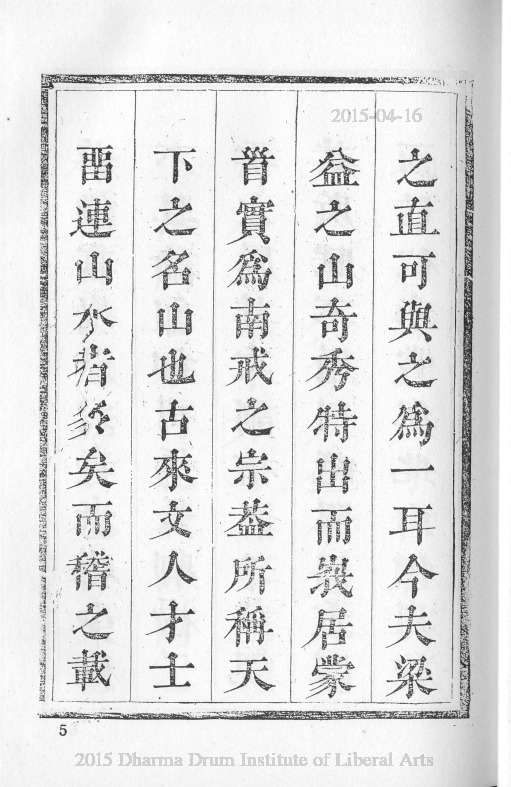 2015-04-16
之直可與之爲一耳今夫梁
益之山奇秀特出而峩居蒙
首實爲南戒之宗葢所稱天
下之名山也古來文人才士
畱連山水者多矣而稽之載
5
2015 Dharma Drum Institute of Liberal Arts